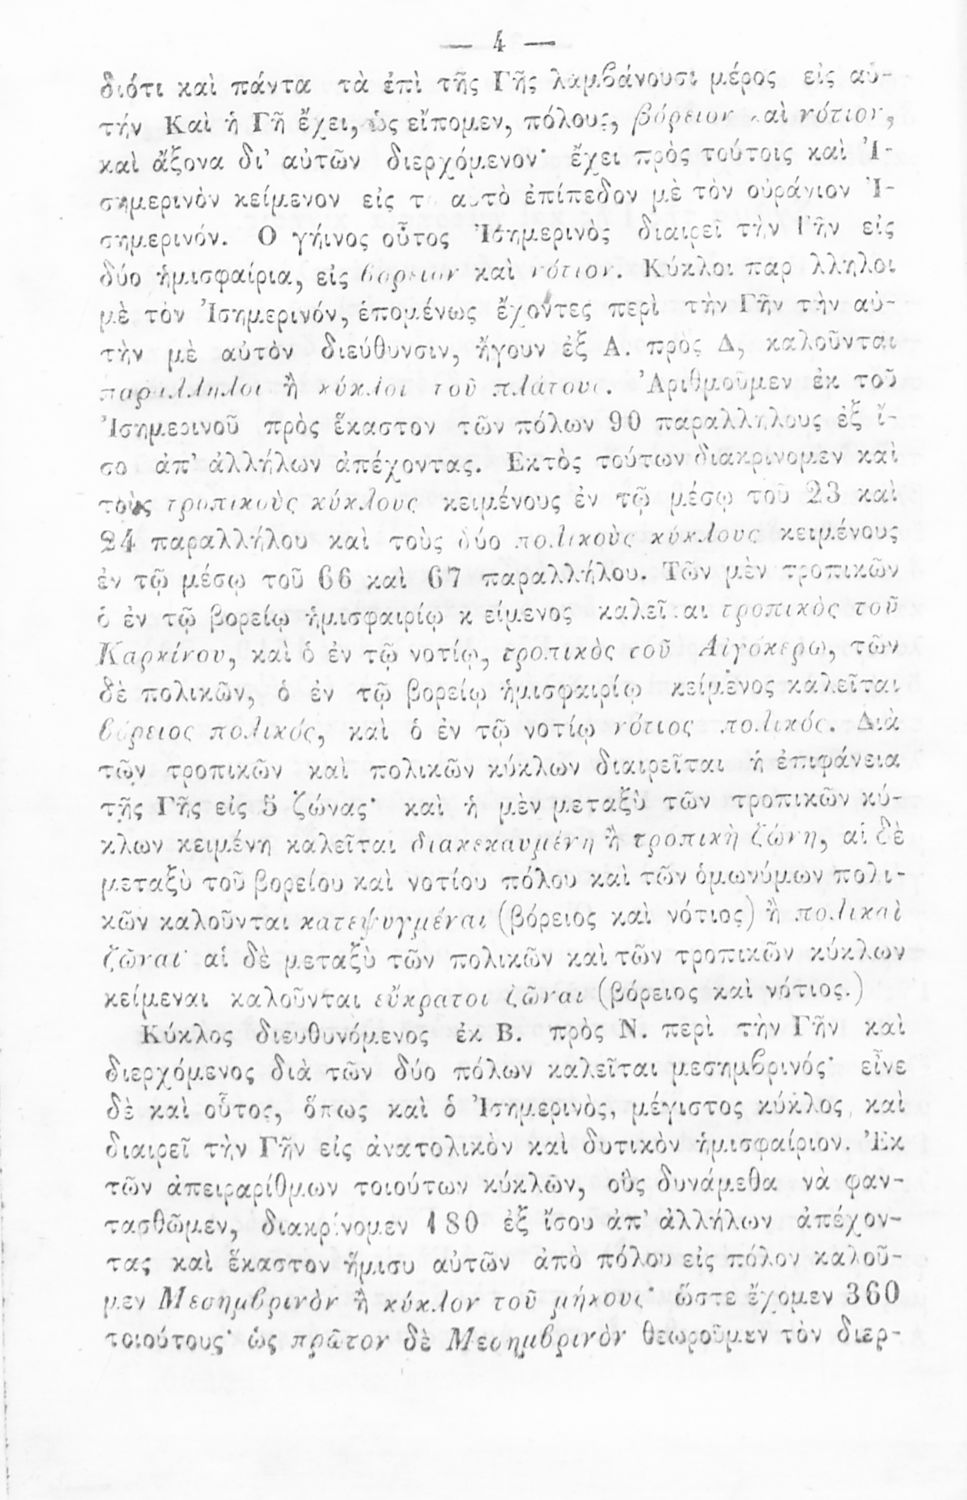 — 4 —
διότι καὶ πάντα τὰ ἐπὶ τῆς Γῆς λαμβάνουσι μέρος εἰς αὐ-
τήν Καὶ ἡ Γῆ ἔχει, ὡς εἴπομεν, πόλους, βόρειον καὶ νότιον,
καὶ ἄξονα δι' αὐτῶν διερχόμενον· ἔχει πρὸς τούτοις καὶ Ἰ-
σημερινὸν κείμενον εἰς τ αυτὸ ἐπίπεδον μὲ τὸν οὐράνιον Ἰ-
σημερινόν. Ο γήινος οὗτος Ἰσημερινὸς διαιρεῖ τὴν Γῆν εἰς
δύο ἡμισφαίρια, εἰς βόρειον καὶ νότιον. Κύκλοι παρ λληλοι
μὲ τὸν Ἰσημερινόν, ἑπομένως ἔχοντες περὶ τὴν Γῆν τὴν αὐ-
τὴν μὲ αὐτὸν διεύθυνσιν, ἤγουν ἐξ Α. πρὸς Δ, καλοῦνται
παράλληλοι ἢ κύκλοι τοῦ πλάτους. Ἀριθμοῦμεν ἐκ τοῦ
Ἰσημερινοῦ πρὸς ἕκαστον τῶν πόλων 90 παραλλήλους ἐξ ἴ-
σο ἀπ' ἀλλήλων ἀπέχοντας. Εκτὸς τούτων διακρίνομεν καὶ
τοὺς τροπικοὺς κύκλους κειμένους ἐν τῷ μέσῳ τοῦ 23 καὶ
24 παραλλήλου καὶ τοὺς δύο πολικοὺς κύκλους κειμένους
ἐν τῷ μέσῳ τοῦ 66 καὶ 67 παραλλήλου. Τῶν μὲν τροπικῶν
ὁ ἐν τῷ βορείῳ ἡμισφαιρίῳ κ είμενος καλεῖται τροπικὸς τοῦ
Καρκίνου, καὶ ὁ ἐν τῷ νοτίῳ, τροπικὸς τοῦ Αἰγόκερω, τῶν
δὲ πολικῶν, ὁ ἐν τῷ βορείῳ ἡμισφαιρίῳ κείμενος καλεῖται
βόρειος πολικός, καὶ ὁ ἐν τῷ νοτίῳ νότιος πολικός. Διὰ
τῶν τροπικῶν καὶ πολικῶν κύκλων διαιρεῖται ἡ ἐπιφάνεια
τῆς Γῆς εἰς 5 ζώνας· καὶ ἡ μὲν μεταξὺ τῶν τροπικῶν κύ-
κλων κειμένη καλεῖται διακεκαυμένη ἢ τροπικὴ ζώνη, αἱ δὲ
μεταξὺ τοῦ βορείου καὶ νοτίου πόλου καὶ τῶν ὁμωνύμων πολι-
κῶν καλοῦνται κατεψυγμέναι (βόρειος καὶ νότιος) ἢ πολικαὶ
ζῶναι· αἱ δὲ μεταξὺ τῶν πολικῶν καὶ τῶν τροπικῶν κύκλων
κείμεναι καλοῦνται εὔκρατοι ζῶναι (βόρειος καὶ νότιος.)
Κύκλος διευθυνόμενος ἐκ Β. πρὸς Ν. περὶ τὴν Γῆν καὶ
διερχόμενος διὰ τῶν δύο πόλων καλεῖται μεσημβρινός· εἶνε
δὲ καὶ οὗτος, ὅπως καὶ ὁ Ἰσημερινὸς, μέγιστος κύκλος, καὶ
διαιρεῖ τὴν Γῆν εἰς ἀνατολικὸν καὶ δυτικὸν ἡμισφαίριον. Ἐκ
τῶν ἀπειραρίθμων τοιούτων κύκλων, οὓς δυνάμεθα νὰ φαν-
τασθῶμεν, διακρίνομεν 180 ἐξ ἴσου ἀπ' ἀλλήλων ἀπέχον-
τας καὶ ἕκαστον ἥμισυ αὐτῶν ἀπὸ πόλου εἰς πόλον καλοῦ-
μεν Μεσημβρινὸν ἢ κύκλον τοῦ μήκους· ὥστε ἔχομεν 360
τοιούτους· ὡς πρῶτον δὲ Μεσημβρινὸν θεωροῦμεν τὸν διερ-